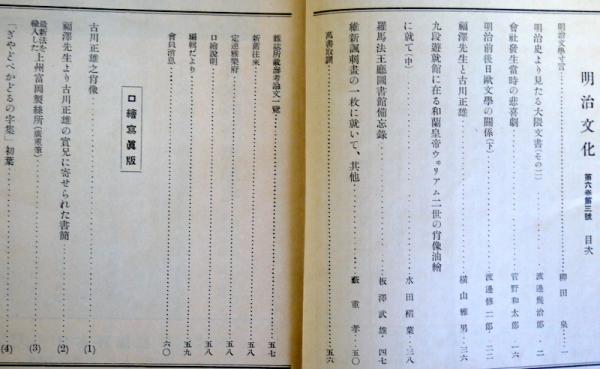 明治文化 第六卷第三號 目次
明治文學寸言……柳田泉…一
明治史より見たる大隈文書(その二)…渡邊幾治郎…二
會社發生當時の悲喜劇……菅野和太郎…一六
明治前後日歐文學の關係(下)……渡邊修二郎…二二
福澤先生と古川正雄……橫山雅男…三六
九段遊就館に在る和蘭皇帝ウ*リアム二世の肖像油繪
に就て(中)……水田稻葉…三八
羅馬法王廳圖書館備忘錄……板澤武雄…四七
維新諷刺畫の一枚に就いて、其他……藪重孝…五〇
萬書取調……五六
雜誌所載參考論文一覽……五七
新舊往來……五八
定連雅樂府……五八
口繪說明……五八
編輯だより……五九
會員消息……六〇
口繪寫眞版
古川正雄之肖像……(1)
福澤先生より古川正雄の實兄に寄せられた書簡……(2)
最新法を輸入した上州富岡製絲所(廣重筆)……(3)
「ぎやどぺかどるの字集」初葉……(4)